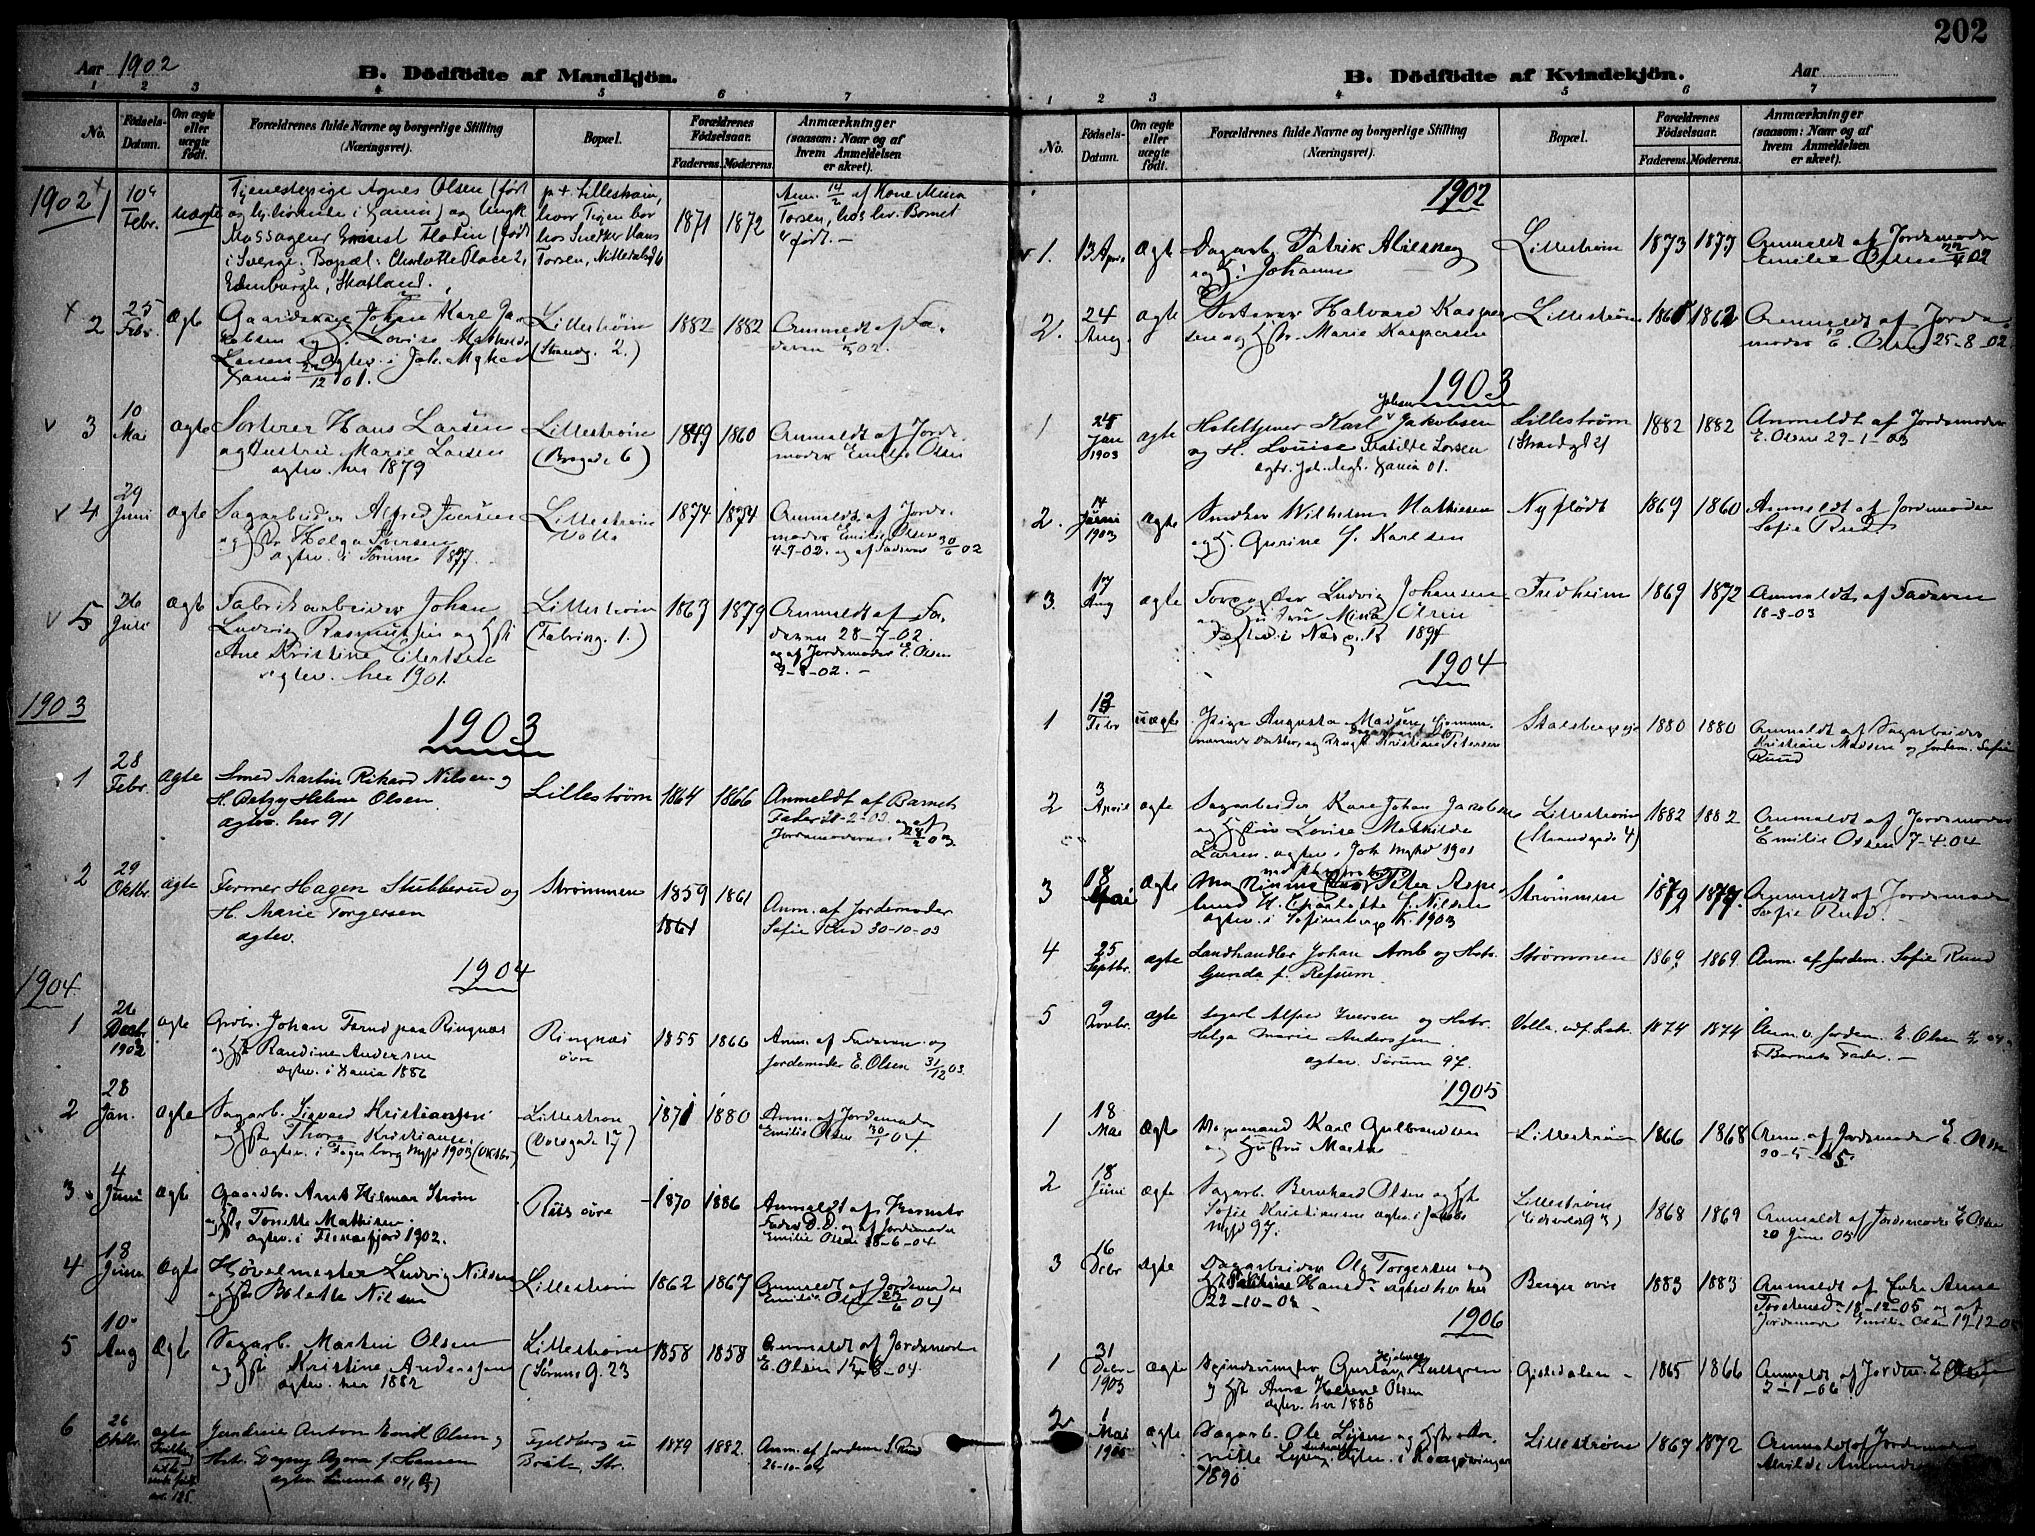 202
Aar 1902
B. Dödfödte af Mandkjön.
1 2 3 4 5 6 7
No.
Födsels-
Datum.
Om ægte
eller
uægte
födt.
Forældrenes fulde Navne og borgerlige Stilling
(Næringsvei).
Bopæl.
Forældrenes
Födselsaar.
Faderens. Moderens.
Anmærkninger
(saasom: Naar og af
hvem Anmeldelsen
er skeet).
1902
1
10
Febr.
uægte
Tjenestepige Agnes Olsen (født
og hjemme i Xania) og Ungk.
Massageur Flodin (født
i Sverige, Bopæl: Charlotte Place 2,
Edinburgh, Skotland.
p.t. Lillestrøm,
hvor Pigen bor
hos Snedker Hans
Torsen, Nittedalsg 6
1871 1872
Anm. 14/2 af Kone Mina
Torsen, hos hv. Barnet
er født. -
2
25
Febr.
ægte
Gaardskarl Johan Karl Ja-
kobsen og H. Lovise Mathilde
Larsen ægtev. i Joh. Mghed
Xania 12 01.
Lillestrøm
(Strandg. 2.)
1882 1882
Anmeldt af Fa-
deren 02.
3
10
Mai
ægte
Sorterer Hans Larsen
og Hustru Marie Larsen
ægtev. her 1879
Lillestrøm
(Brogade 6)
1849 1860
Anmeldt af Jorde-
moder Emilie Olsen
4
29
Juni
ægte
Sagarbeider Alfred Iversen
og Hstr Helga Iversen
ægtev. i Sørum 1897.
Lillestrøm
Volla
1874 1874
Anmeldt af Jorde-
moder Emilie Olsen
4-7-02. og af Faderen 30/6 02
5
26
Juli
ægte
Fabrikarbeider Johan
Ludvig Rasmussen og Hstr
Ane Kristine Eilertsen
ægtev. her 1901.
Lillestrøm
(Fabring. 1.)
1863 1879
Anmeldt af Fa-
deren 28-7-02.
og af Jordemoder E. Olsen
-8-02. -
1903
1903
1
28
Febr.
ægte
Smed Martin Rikard Nilsen og
H. Betzy Helene Olsen
ægtev. her 91
Lillestrøm
1864 1866
Anmeldt af Barnets
Fader -2-03 og af
Jordemoderen 28/2 03.
2
29
Oktbr.
ægte
Former Hagen Stubberud og
H. Marie Torgersen
ægtev.
Strømmen
1859 1861
1861
Anm. af Jordemoder
Sofie Rud 30-10-03
1904
1904
1
26
Decbr.
1903
ægte
Grdbr. Johan paa Ringnæs
og Hstr Randine Andersen
ægtev. i Xania 1886
Ringnæs
øvre
1855 1866
Anm. af Faderen og
Jordemoder E. Olsen 31/12 03.
2
28
Jan.
ægte
Sagarb. Sigvard Kristiansen
og Hstr Thora Kristiansen
ægtev. i Fagerborg Mghd 1903 (Oktbr)
Lillestrøm
(Voldgade 17)
1871 1880
Anm. af Jordemoder
Emilie Olsen 30/1 04.
3
4
Juni
ægte
Gaardbr. Arnt Hilmar Strøm
og Hstr Tonette Mathisen
ægtev. i 1902.
Riis øvre
1870 1886
Anmeldt af Barnets
Fader D. D. og af Jordemoder
Emilie Olsen 18-6-04.
4
18
Juni
ægte
Høvelmester Ludvig Nilsen
og Hstr Bolette Nilsen
Lillestrøm
1862 1867
Anmeldt af Jordemoder
Emilie Olsen 6 04
5
10
Aug
ægte
Sagarb. Martin Olsen
og Hstr Kristine Andersen
ægtev. her 1882
Lillestrøm
(Sørums G. 23
1858 1858
Anmeldt af Jordemoder
E. Olsen -8-04.
6
26
Oktbr.
ægte
Anton Emil Olsen og
Hstr. Dagny f. Hansen
ægtev. 04
1879 1882.
Anm. af Jordem. S. Rud
26-10-04
B. Dödfödte af Kvindekjön.
Aar
1 2 3 4 5 6 7
No.
Födsels-
Datum.
Om ægte
eller
uægte
födt.
Forældrenes fulde Navne og borgerlige Stilling
(Næringsvei).
Bopæl.
Forældrenes
Födselsaar.
Faderens. Moderens.
Anmærkninger
(saasom: Naar og af
hvem Anmeldelsen
er skeet).
1902
1.
13 Apr.
ægte
Dagarb. Patrik
og H. Johanne
Lillestrøm
1873 1877
Anmeldt af Jordemoder
Emilie Olsen 22/4 02
2.
24
Aug.
ægte
Sorterer Halvard Kasper-
sen og Hstr. Marie Kaspersen
Lillestrøm
1861 1862
Anmeldt af Jorde-
moder E. Olsen 25-8-02.
1903
1
24
Jan
1903
ægte
Hotelkjører Karl Johan Jakobsen
og H. Louise Matilde Larsen
ægtv. Joh. Xania 01.
Lillestrøm
(Strandgt 2)
1882 1882
Anmeldt af Jordemoder
E. Olsen 29-1-03
2.
14
Juni
1903
ægte
Snedker Wilhelm Mathiesen
og H. Gurine f. Karlsen
Nyflødt
1869 1860
Anmeldt af Jordemoder
Sofie Rud.
3.
17
Aug
ægte
Ludvig Johansen
og Hustru Mina Olsen
i Næs 1894
Fredheim
1869 1872
Anmeldt af Faderen
18-8-03
1904
1
13
Febr
uægte
Pige Augusta Madsen, hjemme-
værende Datter, og Ungk. Kristian Petersen
1880 1880
Anmeldt af Sagarbeider
Kristian Madsen og Jordem. Sofie
Ruud
2
3
April
ægte
Sagarbeider Karl Johan Jacobsen
og Hstru Lovise Mathilde
Larsen. ægtev. i Joh. Mghd 1901
Lillestrøm
(Strandgade 4)
1882 1882
Anmeldt af Jordemoder
Emilie Olsen 7-4-04
3
18
Mai
ægte
Peter Aspe-
lund H. Charlotte f. Nilsen
ægtev. i Sofienberg K. 1903
Strømmen
1879 1879.
Anmeldt af Jordemoder
Sofie Rud.
4
25
Septbr.
ægte
Landhandler Johan Arnb og Hstr.
Gunda f. Refsum.
Strømmen
1869 1869.
Anm. af Jordem. Sofie Ruud
5
9
Novbr.
ægte
Sagarb. Alfred Iversen og Hstr.
Helga Marie Anderssen
ægtev. Sørum 97.
1874 1874
Anm. v. Jordem. E. Olsen 04
& Barnets Fader. -
1905
1
18
Mai
ægte
Vognmand Karl Gulbrandsen
og Hustru Marta
Lillestrøm
1866 1868
Anm. af Jordemoder E. Olsen
20-5-05.
2
18
Juni
ægte
Sagarb. Bernhard Olsen og Hstr
Sofie Kristiansen ægtev. i Jakobs
Mghd 97.
Lillestrøm
1868 1869
Anmeldt af Jordemoder E. Olsen
20 Juni 05
3
16
Debr
ægte
Dagarbeider Ole Torgersen og
Hstr Hansd. ægtev. her
22-10-04
Berger øvre
1883 1883
Anmeldt af Enke Anne
18-12-05 og af
Jordemoder Emilie Olsen 19-12-05
1906
1
31
Debr
1903
ægte
Spindemester Gustav Hjalmar
og Hstr Anna Helene Olsen
ægtev. her 1886
1865 1866
Anmeldt af Jordm. E. Olsen
2-1-06
2
1
Mai
1906
ægte
Sagarb. Ole Lysen og Hstr An-
nette Lysen, ægtev. i Kongsvinger
1890
Lillestrøm
1867 1872
Anmeldt af Jordemoder
Alvilde